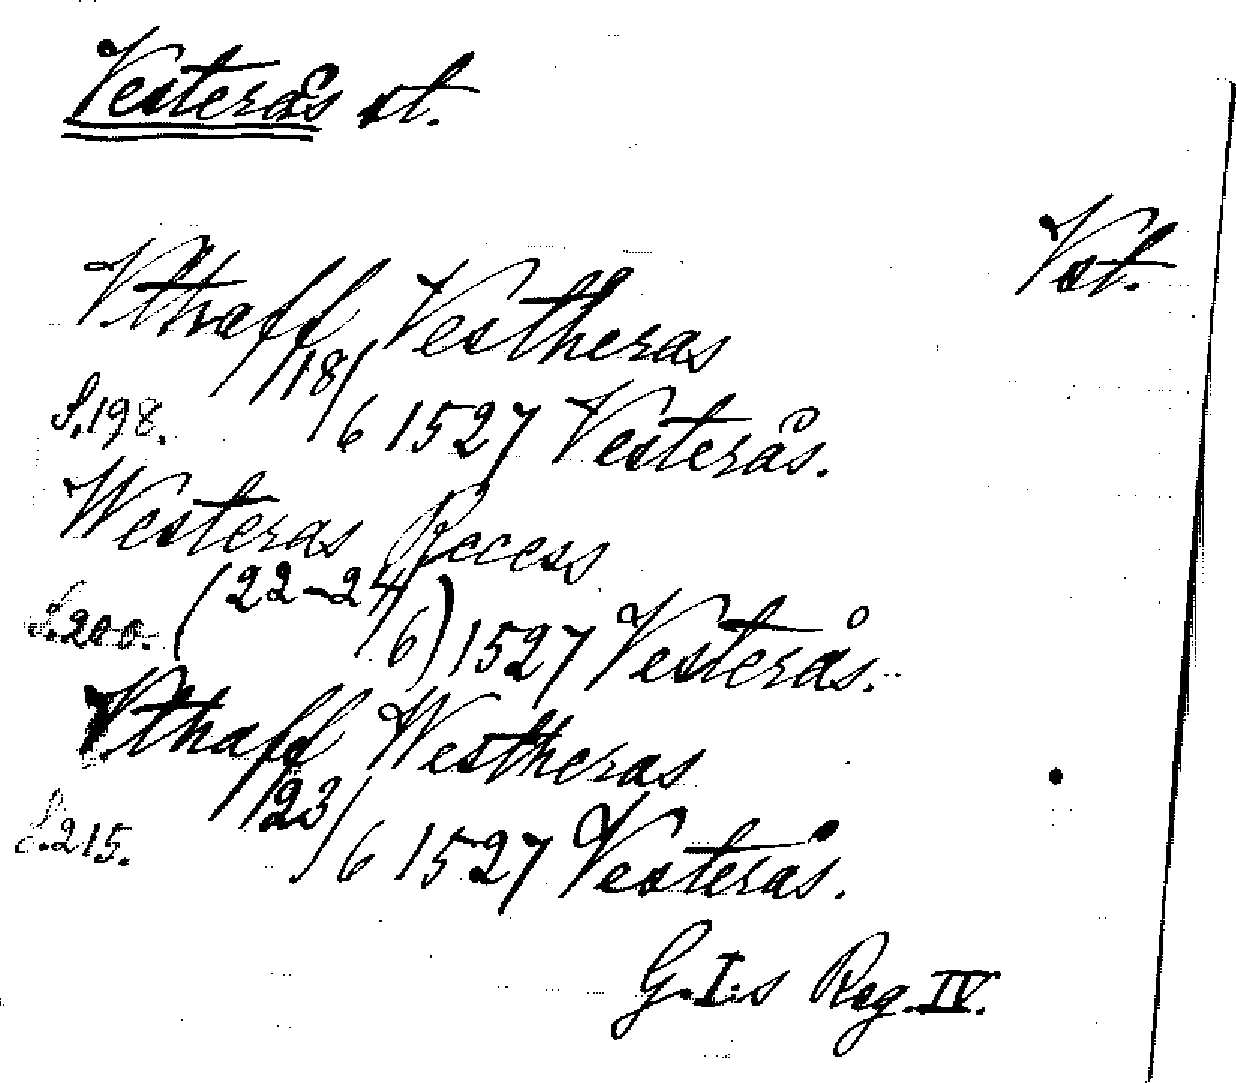 Vesterås st.
Vst.
Vthaff Vestheras
S.198. 18/6 1527 Vesterås.
Westeras Recess
S.200. (22-24/6) 1527 Vesterås.
Vthaff Westheras
S.215. 23/6 1527 Vesterås.
G.I:s Reg. IV.